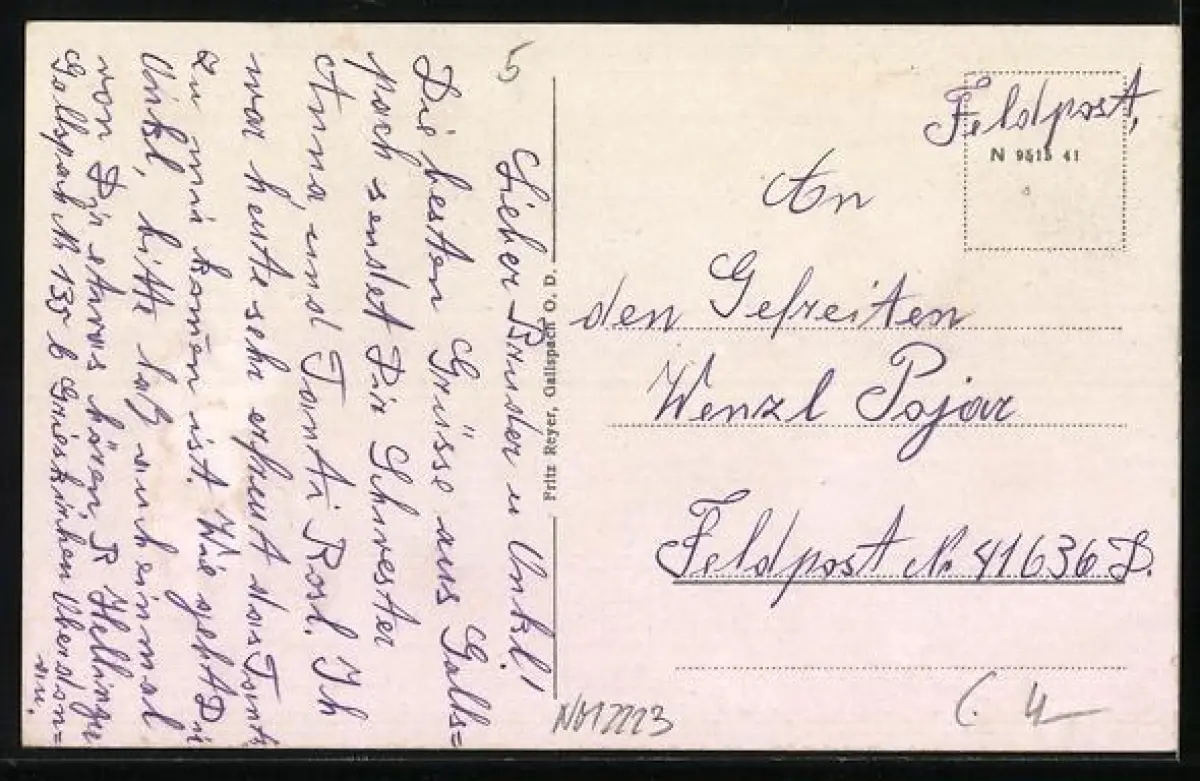 5
Lieber Bruder u Unkl!
Die besten Grüsse aus Galls=
pach sendet Dir Schwester
Anna, und Tanti Rosl. Ich
war heute sehr erfreut das Tanti
zu mir komen ist. Wie geht Dir
Unkl, bitte laß auch einmal
von Dir etwas hören, R Hellinger
Gallspach Nr 135 b Grieskirchen Oberdon=
au.
Fritz Reyer, Gallspach O. D.
Feldpost,
N 9515 41
An
den Gefreiten
Wenzl Pojar
Feldpost Nr 41636 D.